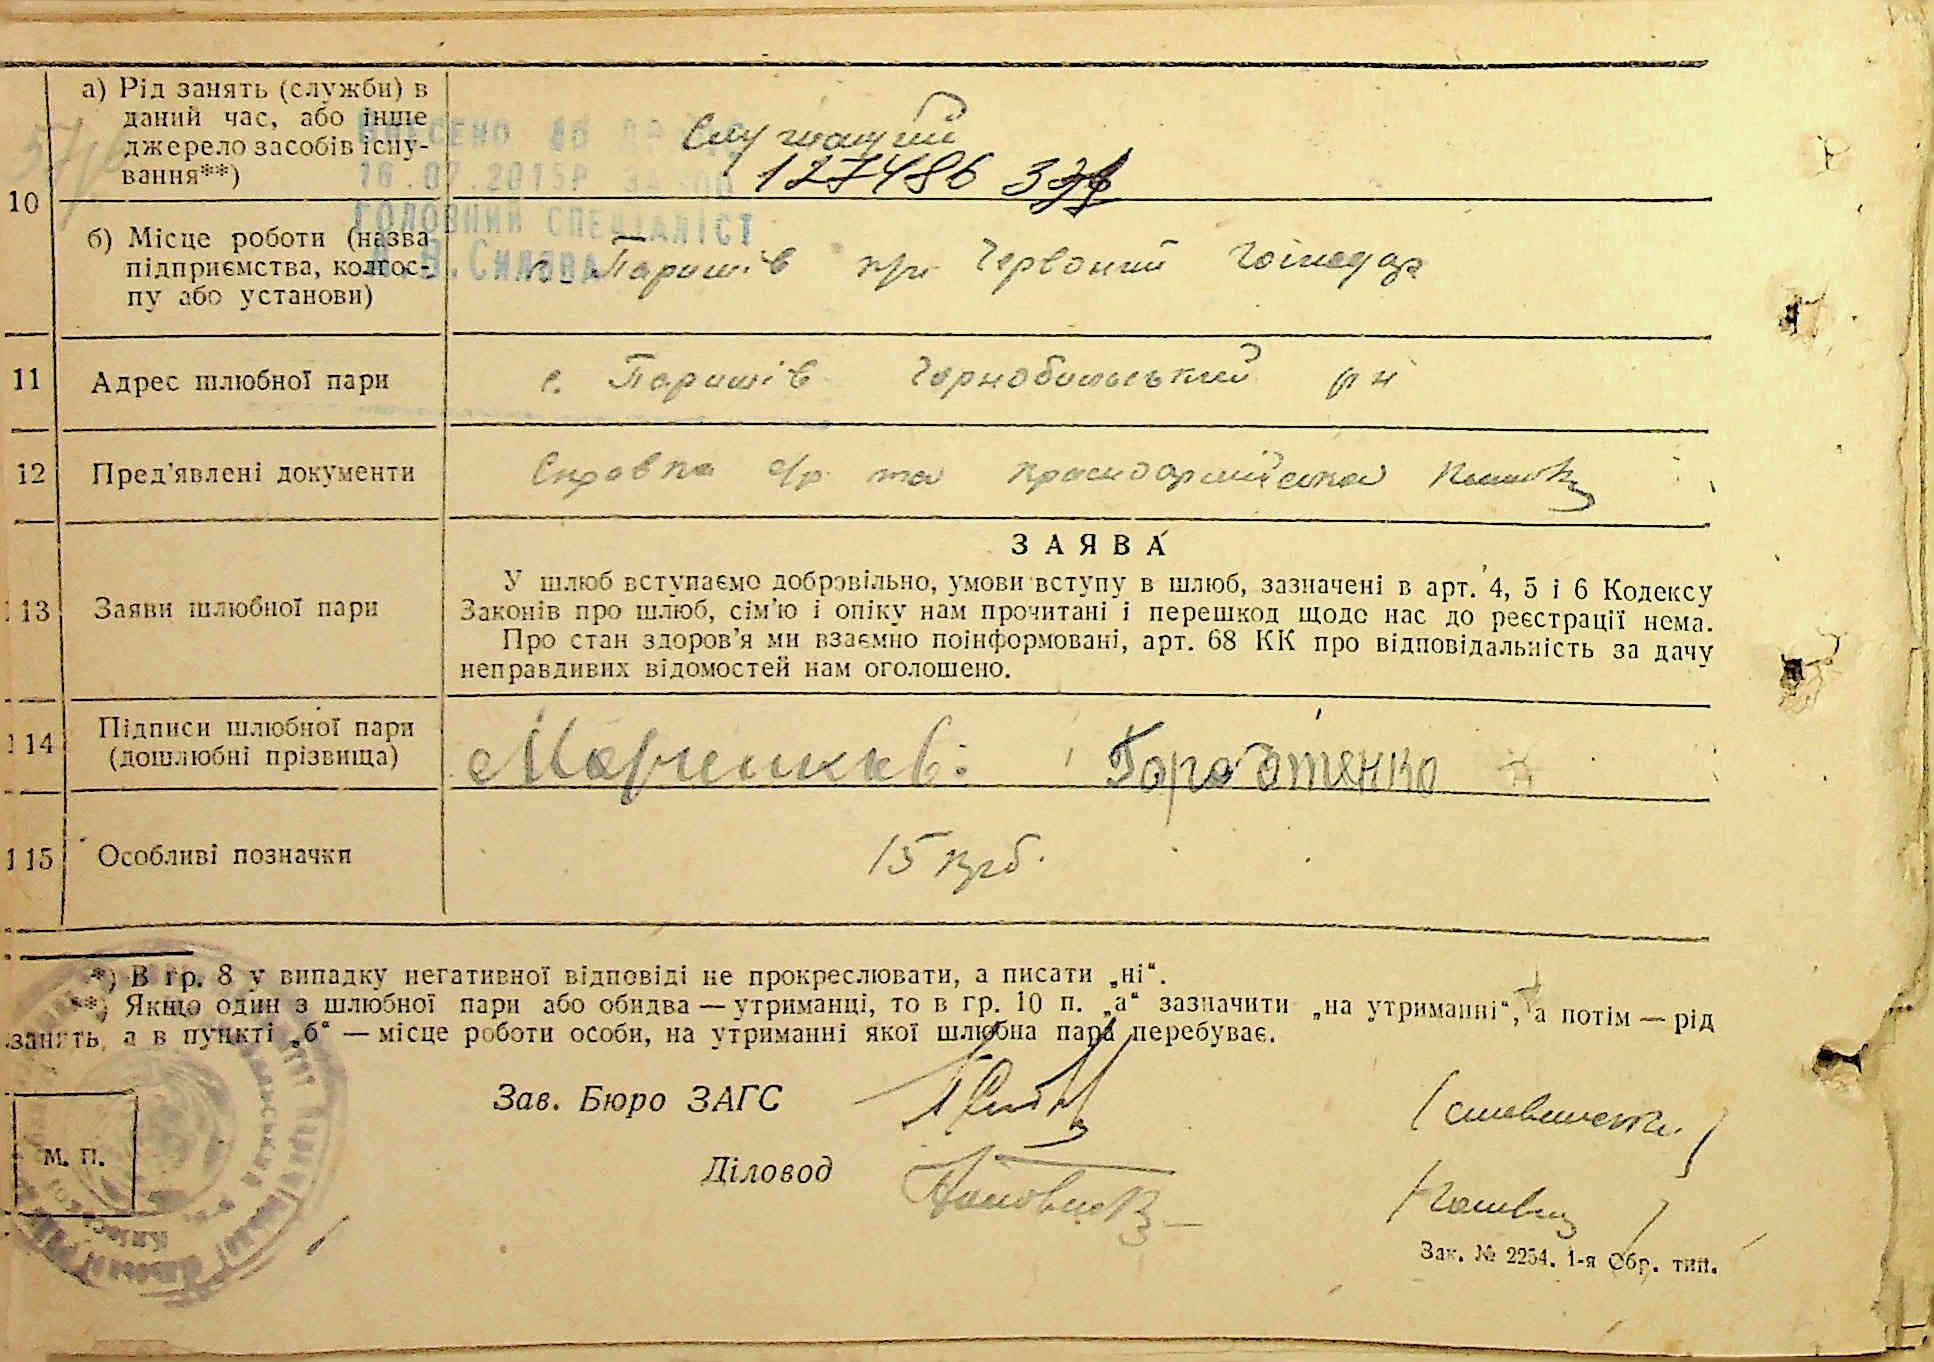 а) Рід занять (служби) в
даний час, або інше
джерело засобів існу-
вання**)
Служащий
127486
16.07.2015Р
ГОЛОВНИЙ СПЕЦІАЛІСТ
10
б) Місце роботи (назва
підприємства, колгос-
пу або установи)
с. Паришів при Червоний Господар
11 Адрес шлюбної пари
с. Паришів Чорнобильський р н
12 Пред'явлені документи
Справка с/р та красноармійська
ЗАЯВА
13 Заяви шлюбної пари
У шлюб вступаємо добровільно, умови вступу в шлюб, зазначені в арт. 4, 5 і 6 Кодексу
Законів про шлюб, сім'ю і опіку нам прочитані і перешкод щодо нас до реєстрації нема.
Про стан здоров'я ми взаємно поінформовані, арт. 68 КК про відповідальність за дачу
неправдивих відомостей нам оголошено.
14 Підписи шлюбної пари
(дошлюбні прізвища)
15 Особливі позначки
15 крб.
*) В гр. 8 у випадку негативної відповіді не прокреслювати, а писати „ні“.
**) Якщо один з шлюбної пари або обидва — утриманці, то в гр. 10 п. „а“ зазначити „на утриманні“, а потім — рід
занять, а в пункті „б“ — місце роботи особи, на утриманні якої шлюбна пара перебуває.
Зав. Бюро ЗАГС
Діловод
М. П.
Зак. № 2254. 1-я Обр. тип.